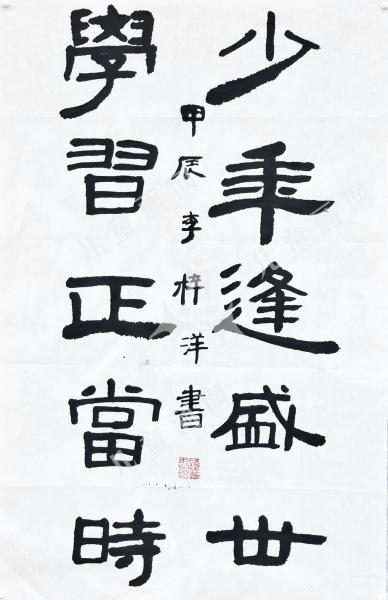 少年逢盛世
學習正當時
甲辰李梓洋書
儿童画网